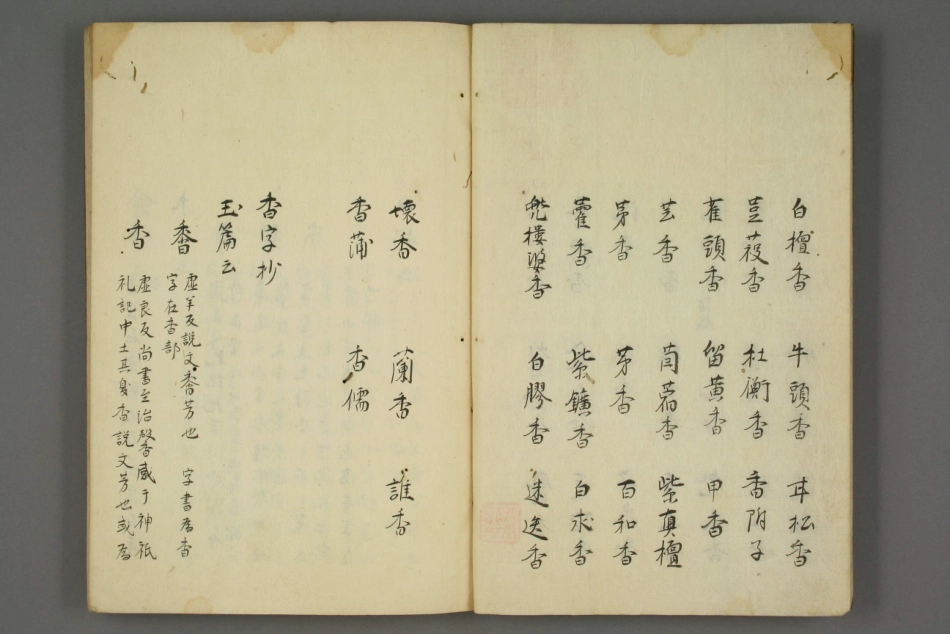 白檀香 牛頭香 甘松香
豆蔲香 杜衡香 香附子
萑頭香 留黄香 甲香
芸香 蕳蒳香 紫真檀
茅香 茅香 百和香
藿香 紫鑛香 白求香
兜樓婆香 白膠香 迷迭香
壞香 蘭香 誰香
香蒲 香儒
香字抄
玉篇云
黍香 虚羊反說文黍香芳也 字書為香
字在香部
香 虚良反尚書至治馨香感于神祇
礼記中士其臭香說文芳也或為